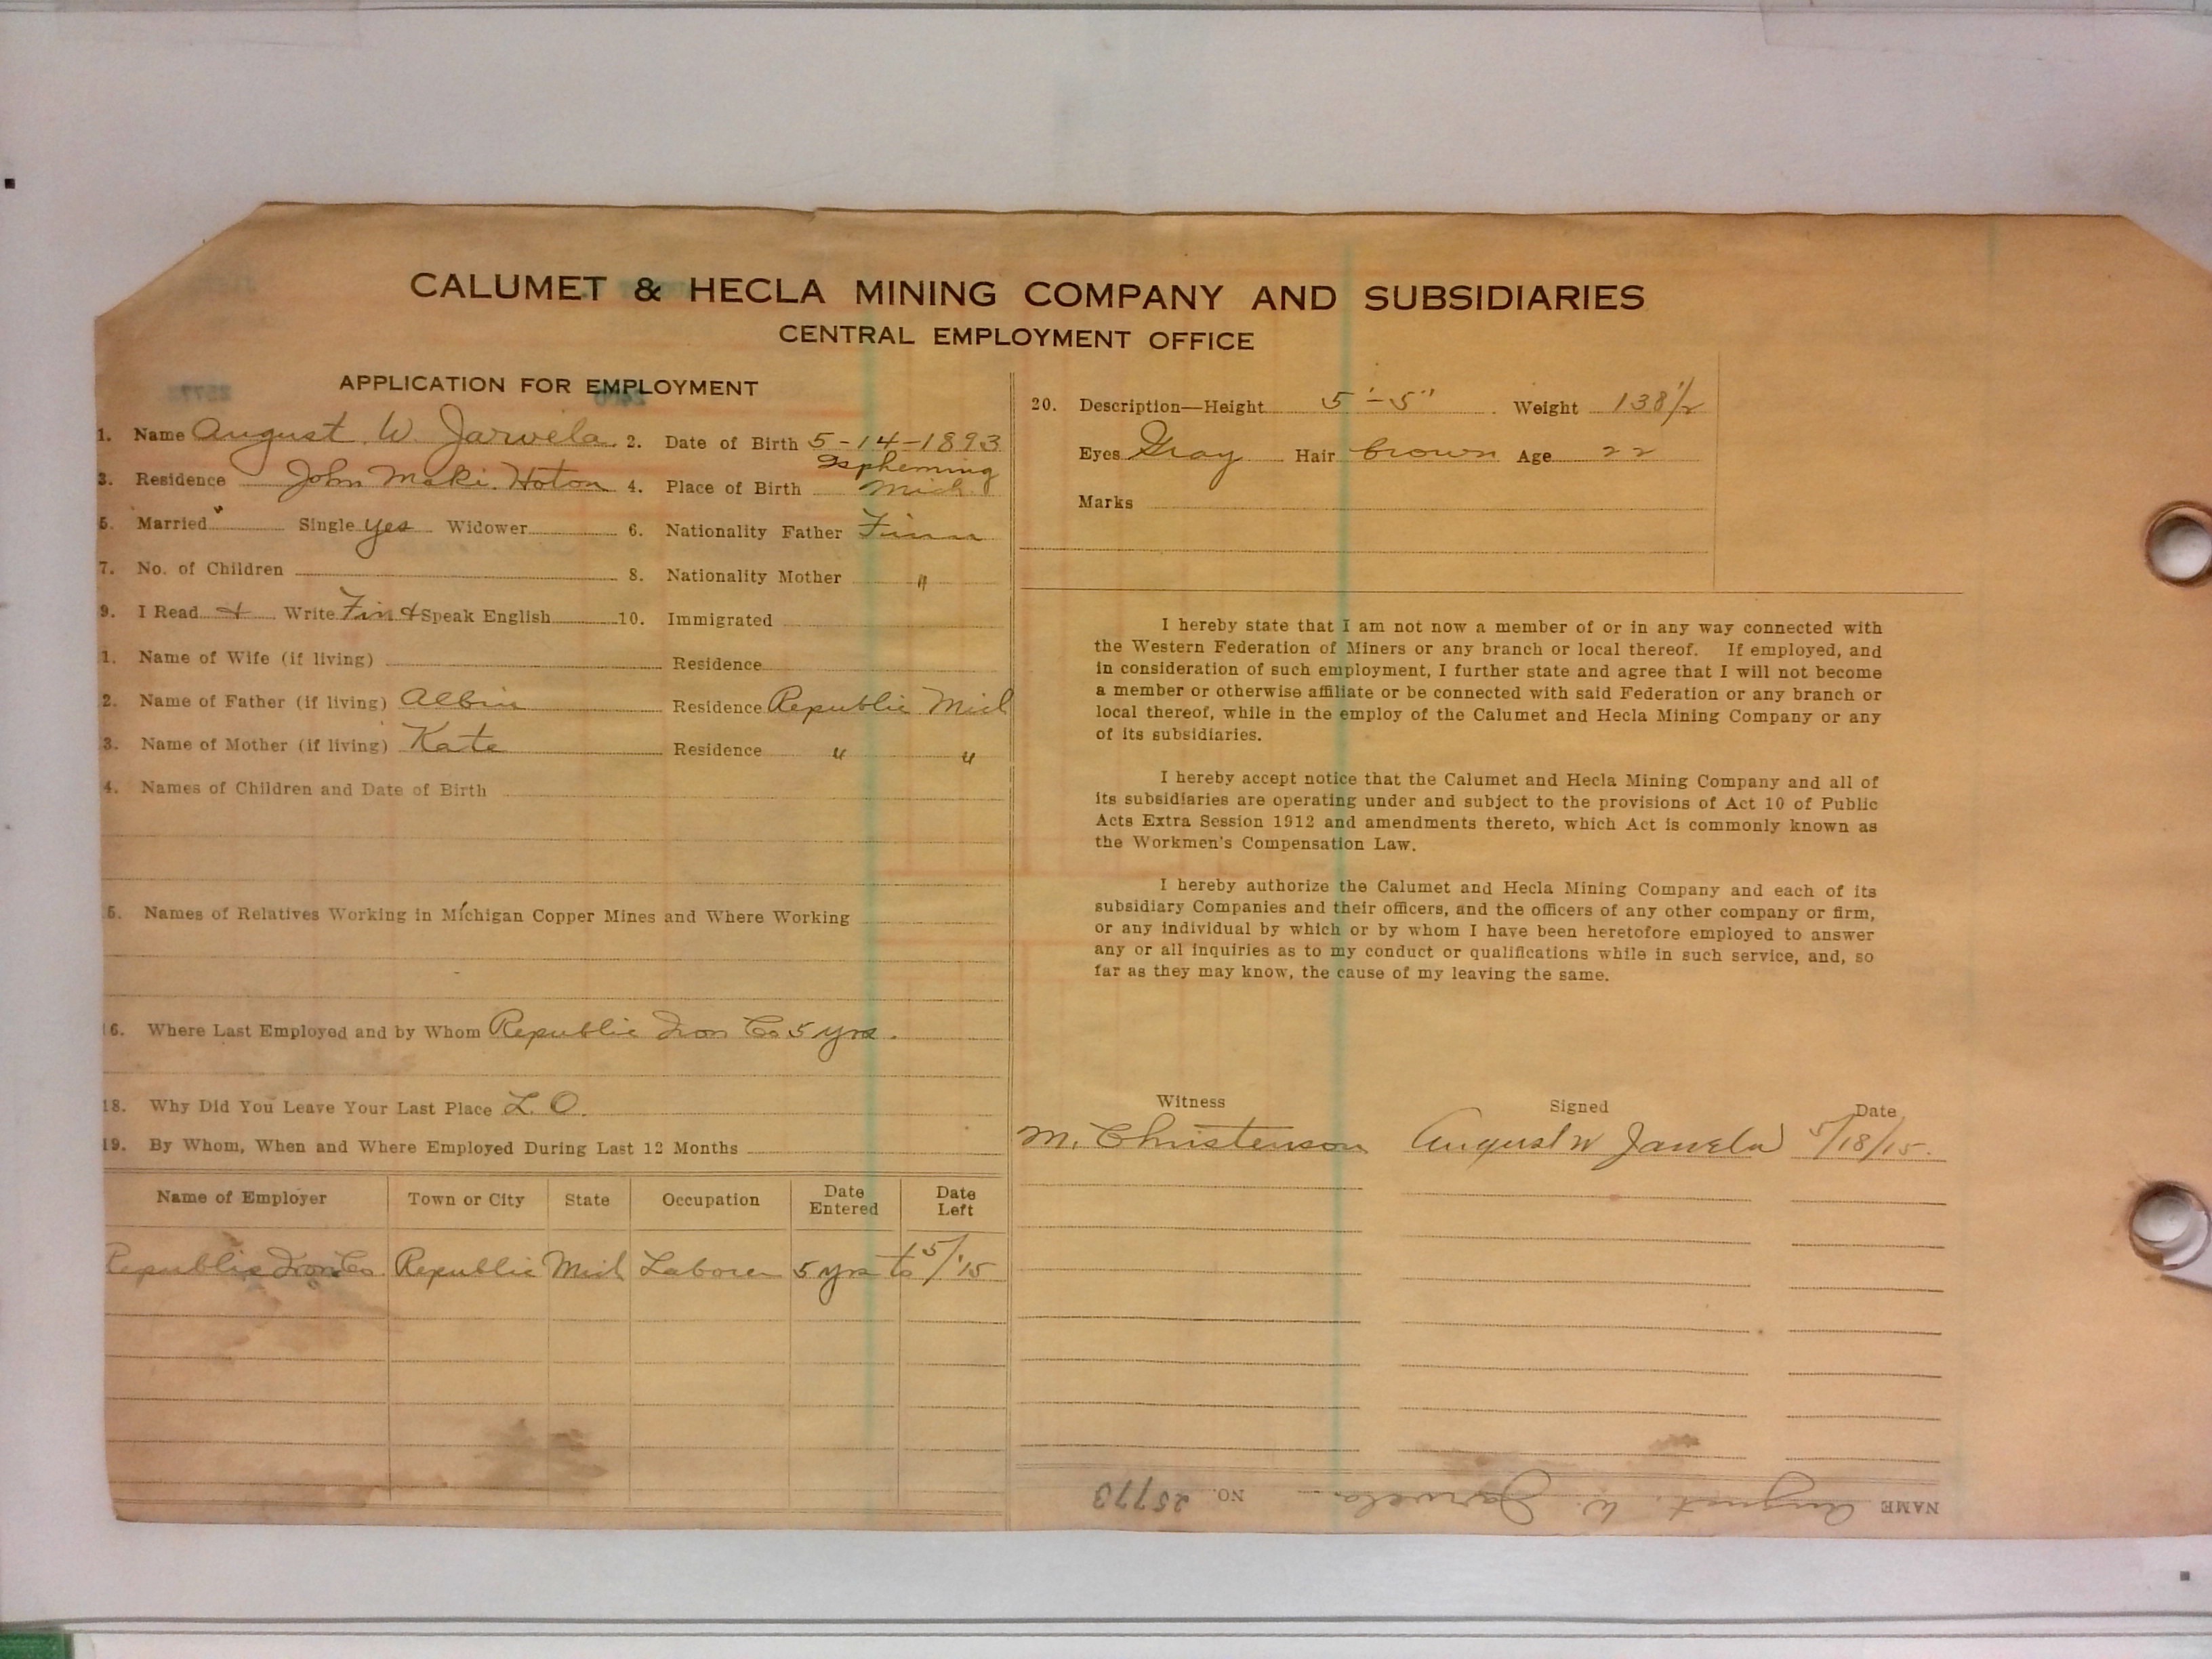 CALUMET & HECLA MINING COMPANY AND SUBSIDIARIES
CENTRAL EMPLOYMENT OFFICE
APPLICATION FOR EMPLOYMENT
1. Name August W. Jarvela 2. Date of Birth 5-14-1893
3. Residence John Maki. Hoton 4. Place of Birth Ispheming Mich.
5. Married Single yes Widower 6. Nationality Father Finn
7. No. of Children 8. Nationality Mother "
9. I Read & Write Fin & Speak English 10. Immigrated
1. Name of Wife (if living) Residence
2. Name of Father (if living) Albin Residence Republic Mich
3. Name of Mother (if living) Kate Residence " "
4. Names of Children and Date of Birth
5. Names of Relatives Working in Michigan Copper Mines and Where Working
16. Where Last Employed and by Whom Republic Iron Co 5 yrs.
18. Why Did You Leave Your Last Place L. O.
19. By Whom, When and Where Employed During Last 12 Months
Name of Employer Town or City State Occupation Date Entered Date Left
Republic Iron Co Republic Mich Laborer 5 yrs to 5/'15
20. Description—Height 5'-5" Weight 138 1/2
Eyes Gray Hair brown Age 22
Marks
I hereby state that I am not now a member of or in any way connected with
the Western Federation of Miners or any branch or local thereof. If employed, and
in consideration of such employment, I further state and agree that I will not become
a member or otherwise affiliate or be connected with said Federation or any branch or
local thereof, while in the employ of the Calumet and Hecla Mining Company or any
of its subsidiaries.
I hereby accept notice that the Calumet and Hecla Mining Company and all of
its subsidiaries are operating under and subject to the provisions of Act 10 of Public
Acts Extra Session 1912 and amendments thereto, which Act is commonly known as
the Workmen's Compensation Law.
I hereby authorize the Calumet and Hecla Mining Company and each of its
subsidiary Companies and their officers, and the officers of any other company or firm,
or any individual by which or by whom I have been heretofore employed to answer
any or all inquiries as to my conduct or qualifications while in such service, and, so
far as they may know, the cause of my leaving the same.
Witness Signed Date
M. Christenson August W Jarvela 5/18/15.
NAME August. W. Jarvela NO. 25773